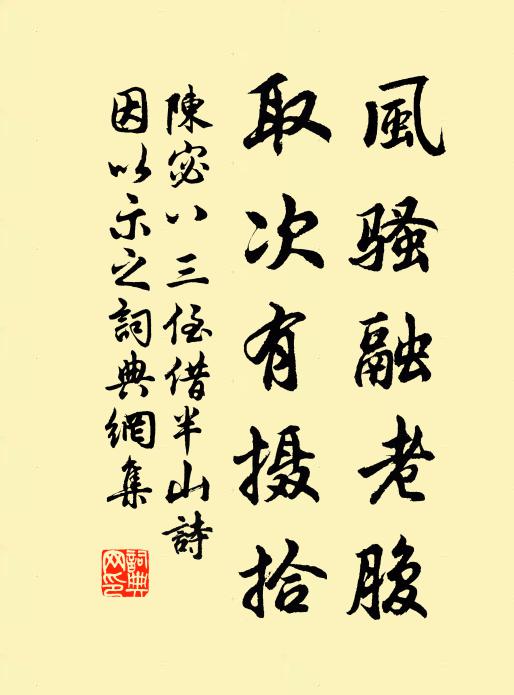 風骚融老腹
取次有摄拾
陳宓八三侄借半山詩
因以示之詞典網集
詞典網印